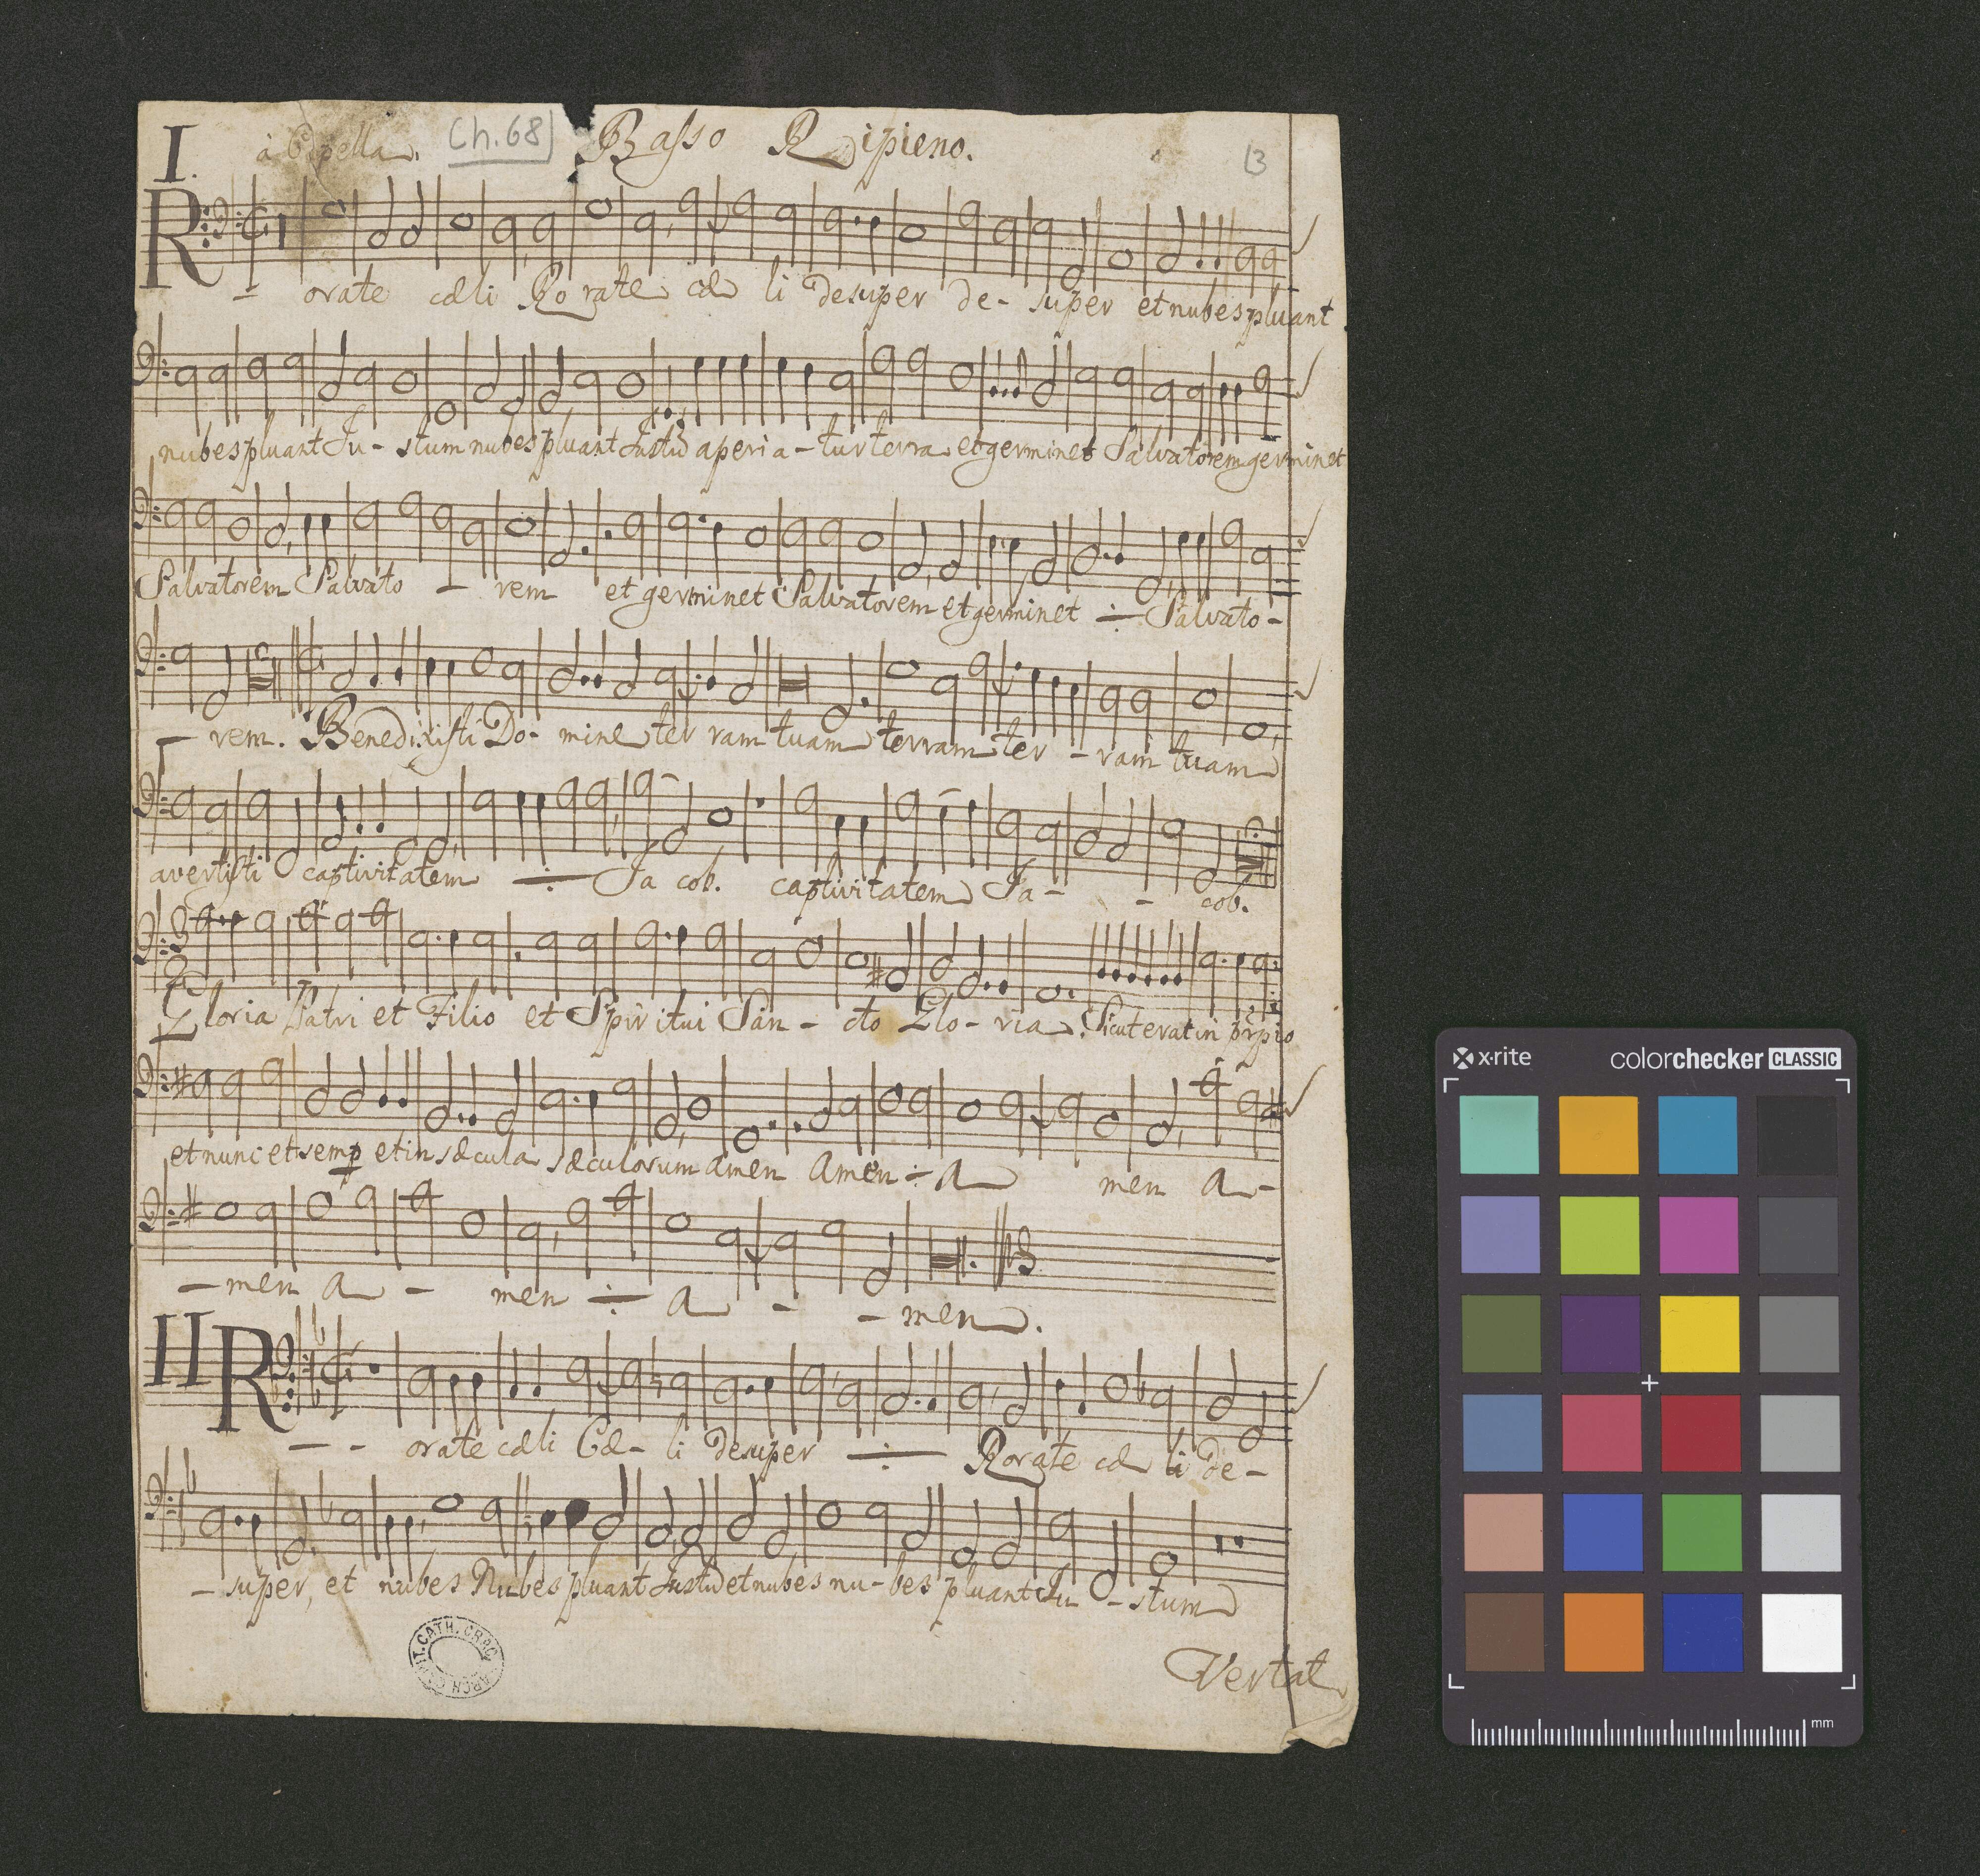 I. à Capella. Ch. 68 Basso Ripieno. 13
R
orate cæli Rorate cæ li desuper de- super et nubes pluant
nubes pluant Ju- stum nubes pluant Justū aperia- tur terra et germinet Salvatorem germinet
Salvatorem Salvato - rem et germinet Salvatorem et germinet ÷ Salvato-
- rem. Benedixisti Do- mine ter ram tuam terram ter - ram tuam
avertisti captivitatem ÷ Ja cob. captivitatem Ja- - cob.
Gloria Patri et Filio et Spiritui San - cto Glo - ria. Sicut erat in
et nunc et semp et in sæcula sæculorum amen Amen ÷ A men A-
- men A - men ÷ A - - men.
II R
- - orate cæli Cæ- li desuper ÷ Rorate cæ li de-
- super, et nubes Nubes pluant Justū et nubes nu- bes pluant Ju - stum
Vertat
x·rite colorchecker CLASSIC
mm